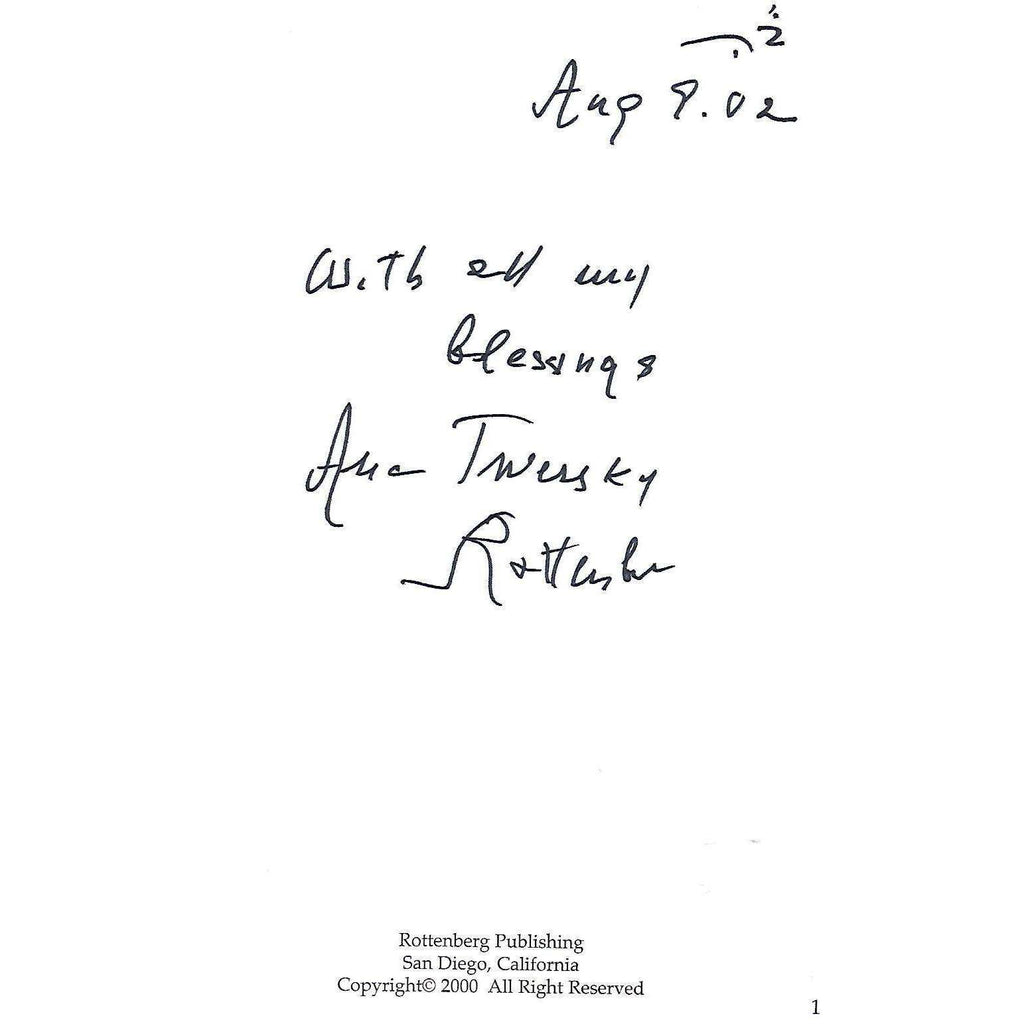 Aug 8.02
With all my
blessings
Ana Twersky
Rottenberg
Rottenberg Publishing
San Diego, California
Copyright© 2000 All Right Reserved
1